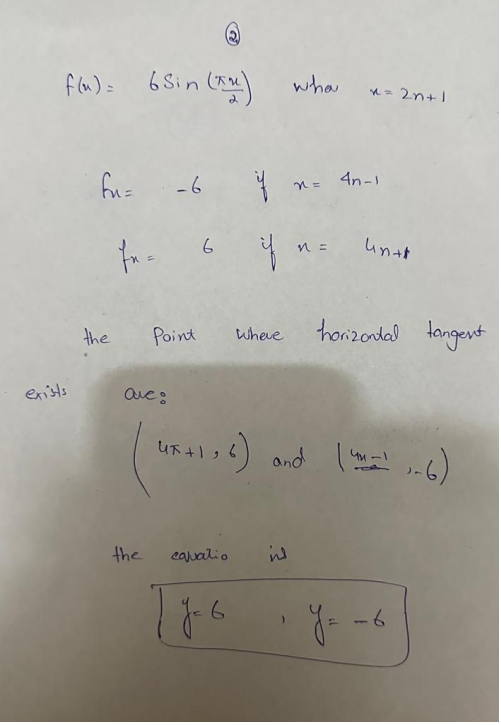 ②
f(x) = 6 Sin (πx/2) when x = 2n+1
fx = -6 if x = 4n-1
fx = 6 if x = 4n+1
the Point where horizontal tangent
exists are:
(4n+1, 6) and (4n-1, -6)
the equatio is
y=6 , y= -6